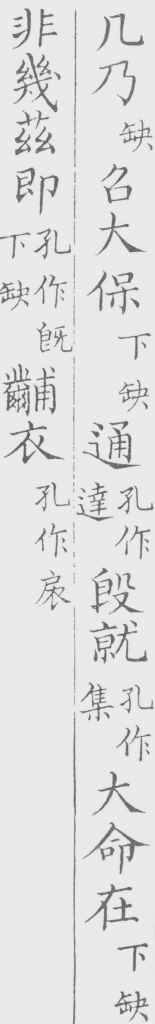 几乃缺召大保下缺通孔作達殷就孔作集大命在下缺
非幾茲即孔作旣下缺黼衣孔作扆